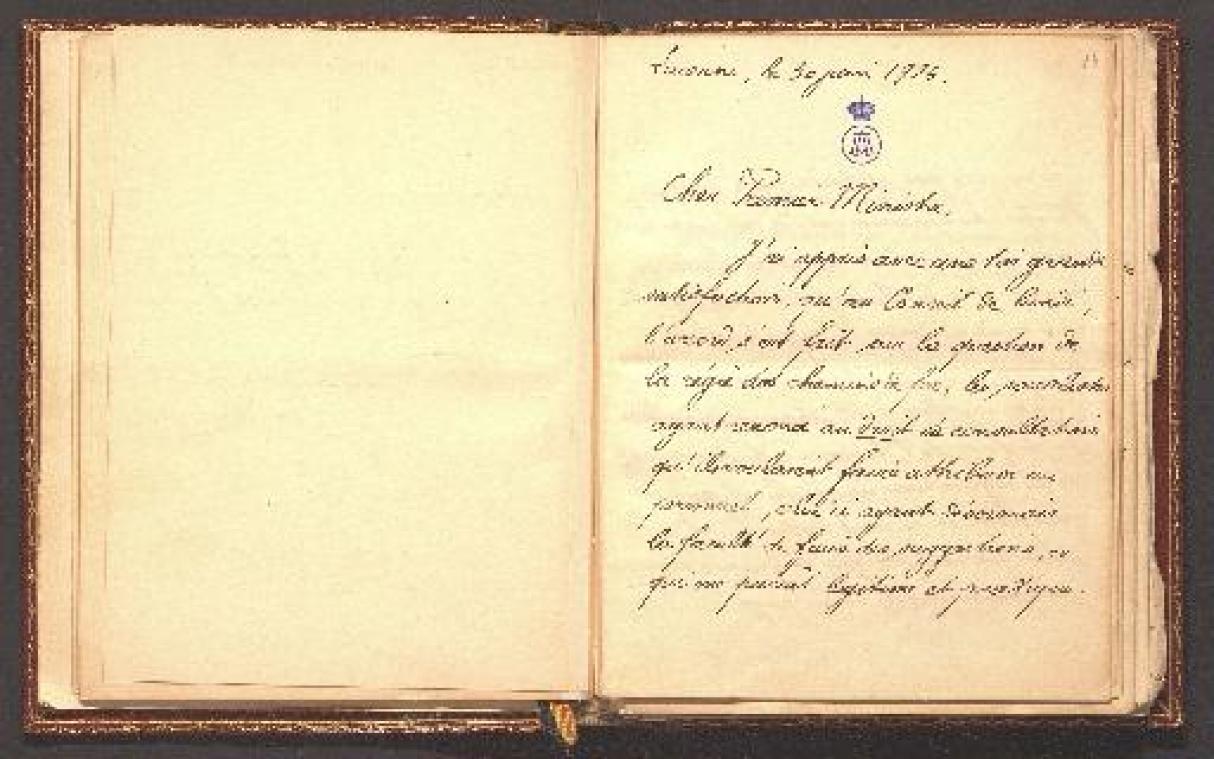 le 30 juin 19
Cher Premier Ministre.
J'ai appris avec une très grande
satisfaction, qu'au Conseil de lundi,
l'accord s'est fait sur la question de
la régie des chemins de fer, les socialistes
ayant renoncé au droit de consultation
qu'ils voulaient faire attribuer au
personnel, celui-ci ayant désormais
la faculté de faire des suggestions, ce
qui me paraît légitime et pratique.